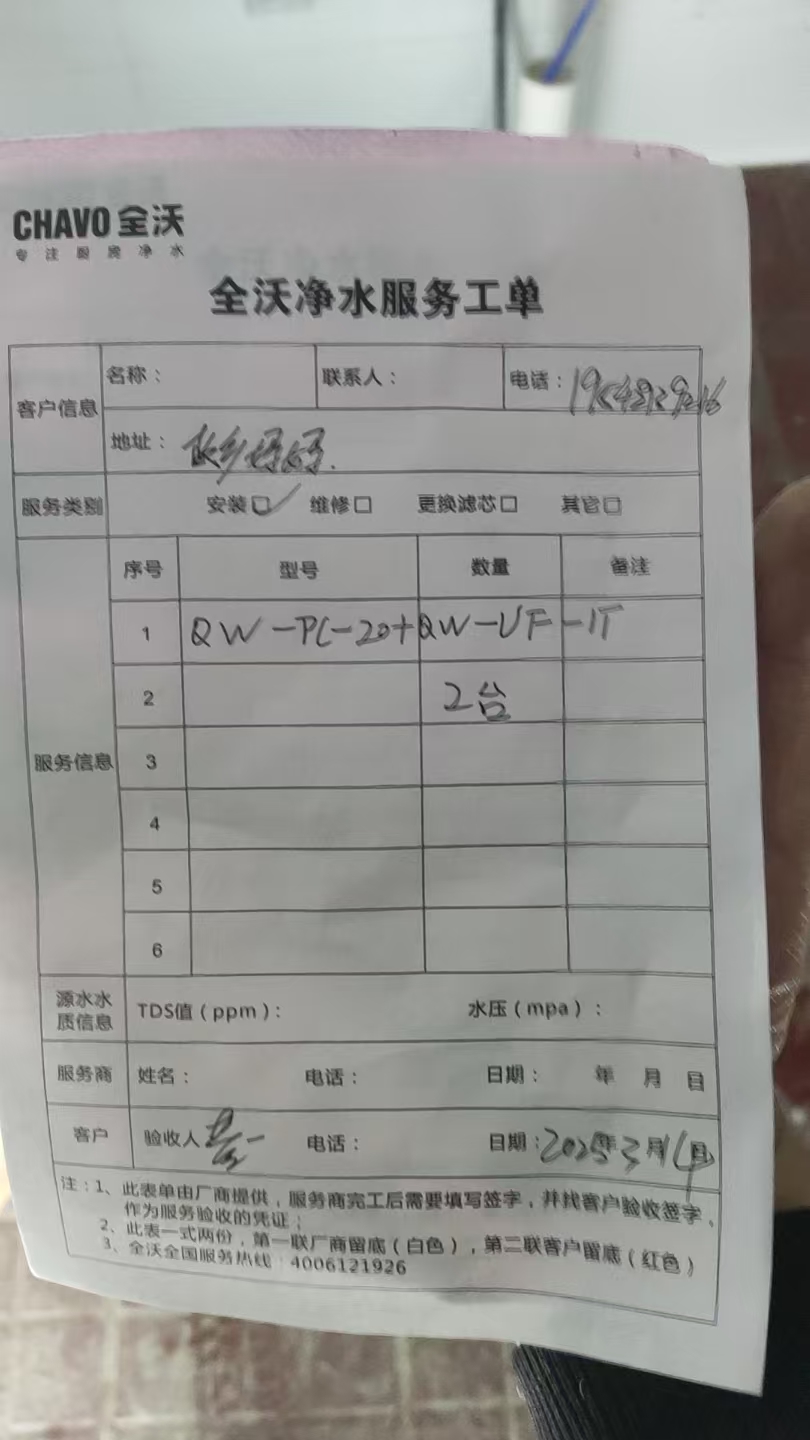 CHAVO 全沃
专注厨房净水
全沃净水服务工单
客户信息 名称： 联系人： 电话：
地址：
服务类别 安装☑ 维修□ 更换滤芯□ 其它□
服务信息 序号 型号 数量 备注
1 QW-PC-20+QW-UF-1T
2 2台
3
4
5
6
源水水质信息 TDS值（ppm）： 水压（mpa）：
服务商 姓名： 电话： 日期： 年 月 日
客户 验收人 电话： 日期：2025年3月14日
注：1、此表单由厂商提供，服务商完工后需要填写签字，并找客户验收签字，
作为服务验收的凭证；
2、此表一式两份，第一联厂商留底（白色），第二联客户留底（红色）
3、全沃全国服务热线：4006121926